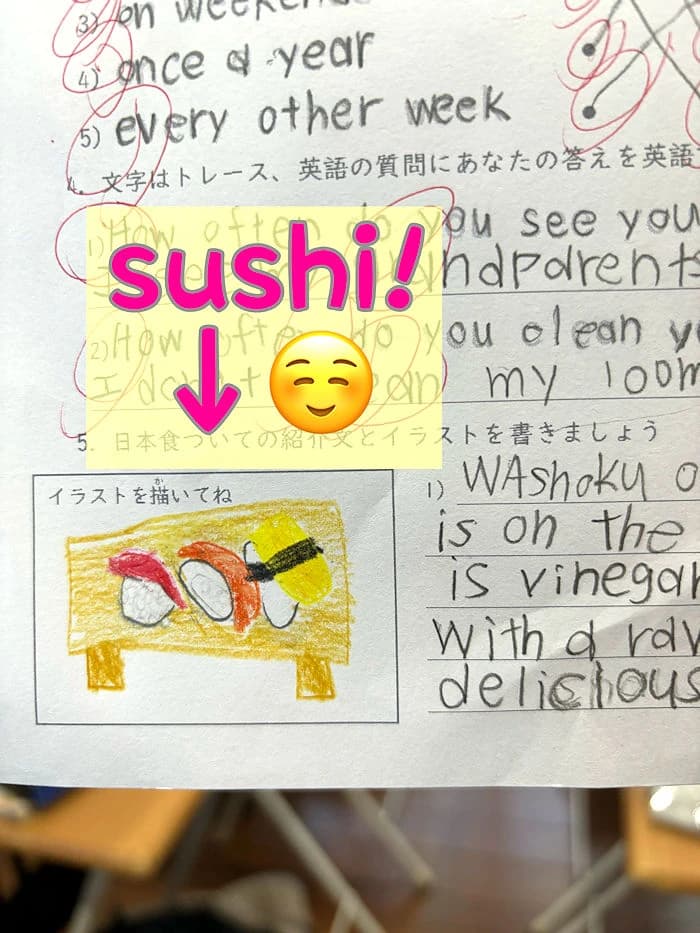 3) on weekends
4) once a year
5) every other week
4. 文字はトレース、英語の質問にあなたの答えを英語
1) How often do you see you
I see my grandparents
sushi!
2) How often do you clean
I don't clean my room
5. 日本食ついての紹介文とイラストを書きましょう
イラストを描いてね
か
1) WAshoku
is on the
is vinegar
with a raw
delicious